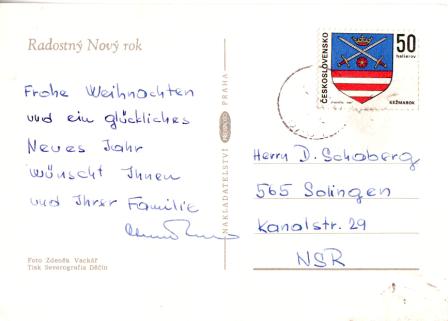 Radostný Nový rok
Frohe Weihnachten
und ein glückliches
Neues Jahr
wünscht Ihnen
und Ihrer Familie
Foto Zdeněk Vackář
Tisk Severografia Děčín
NAKLADATELSTVÍ
PRAHA
ČESKOSLOVENSKO
50
halierov
KEŽMAROK
Herrn D. Schaberg
565 Solingen
Kanalstr. 29
NSR